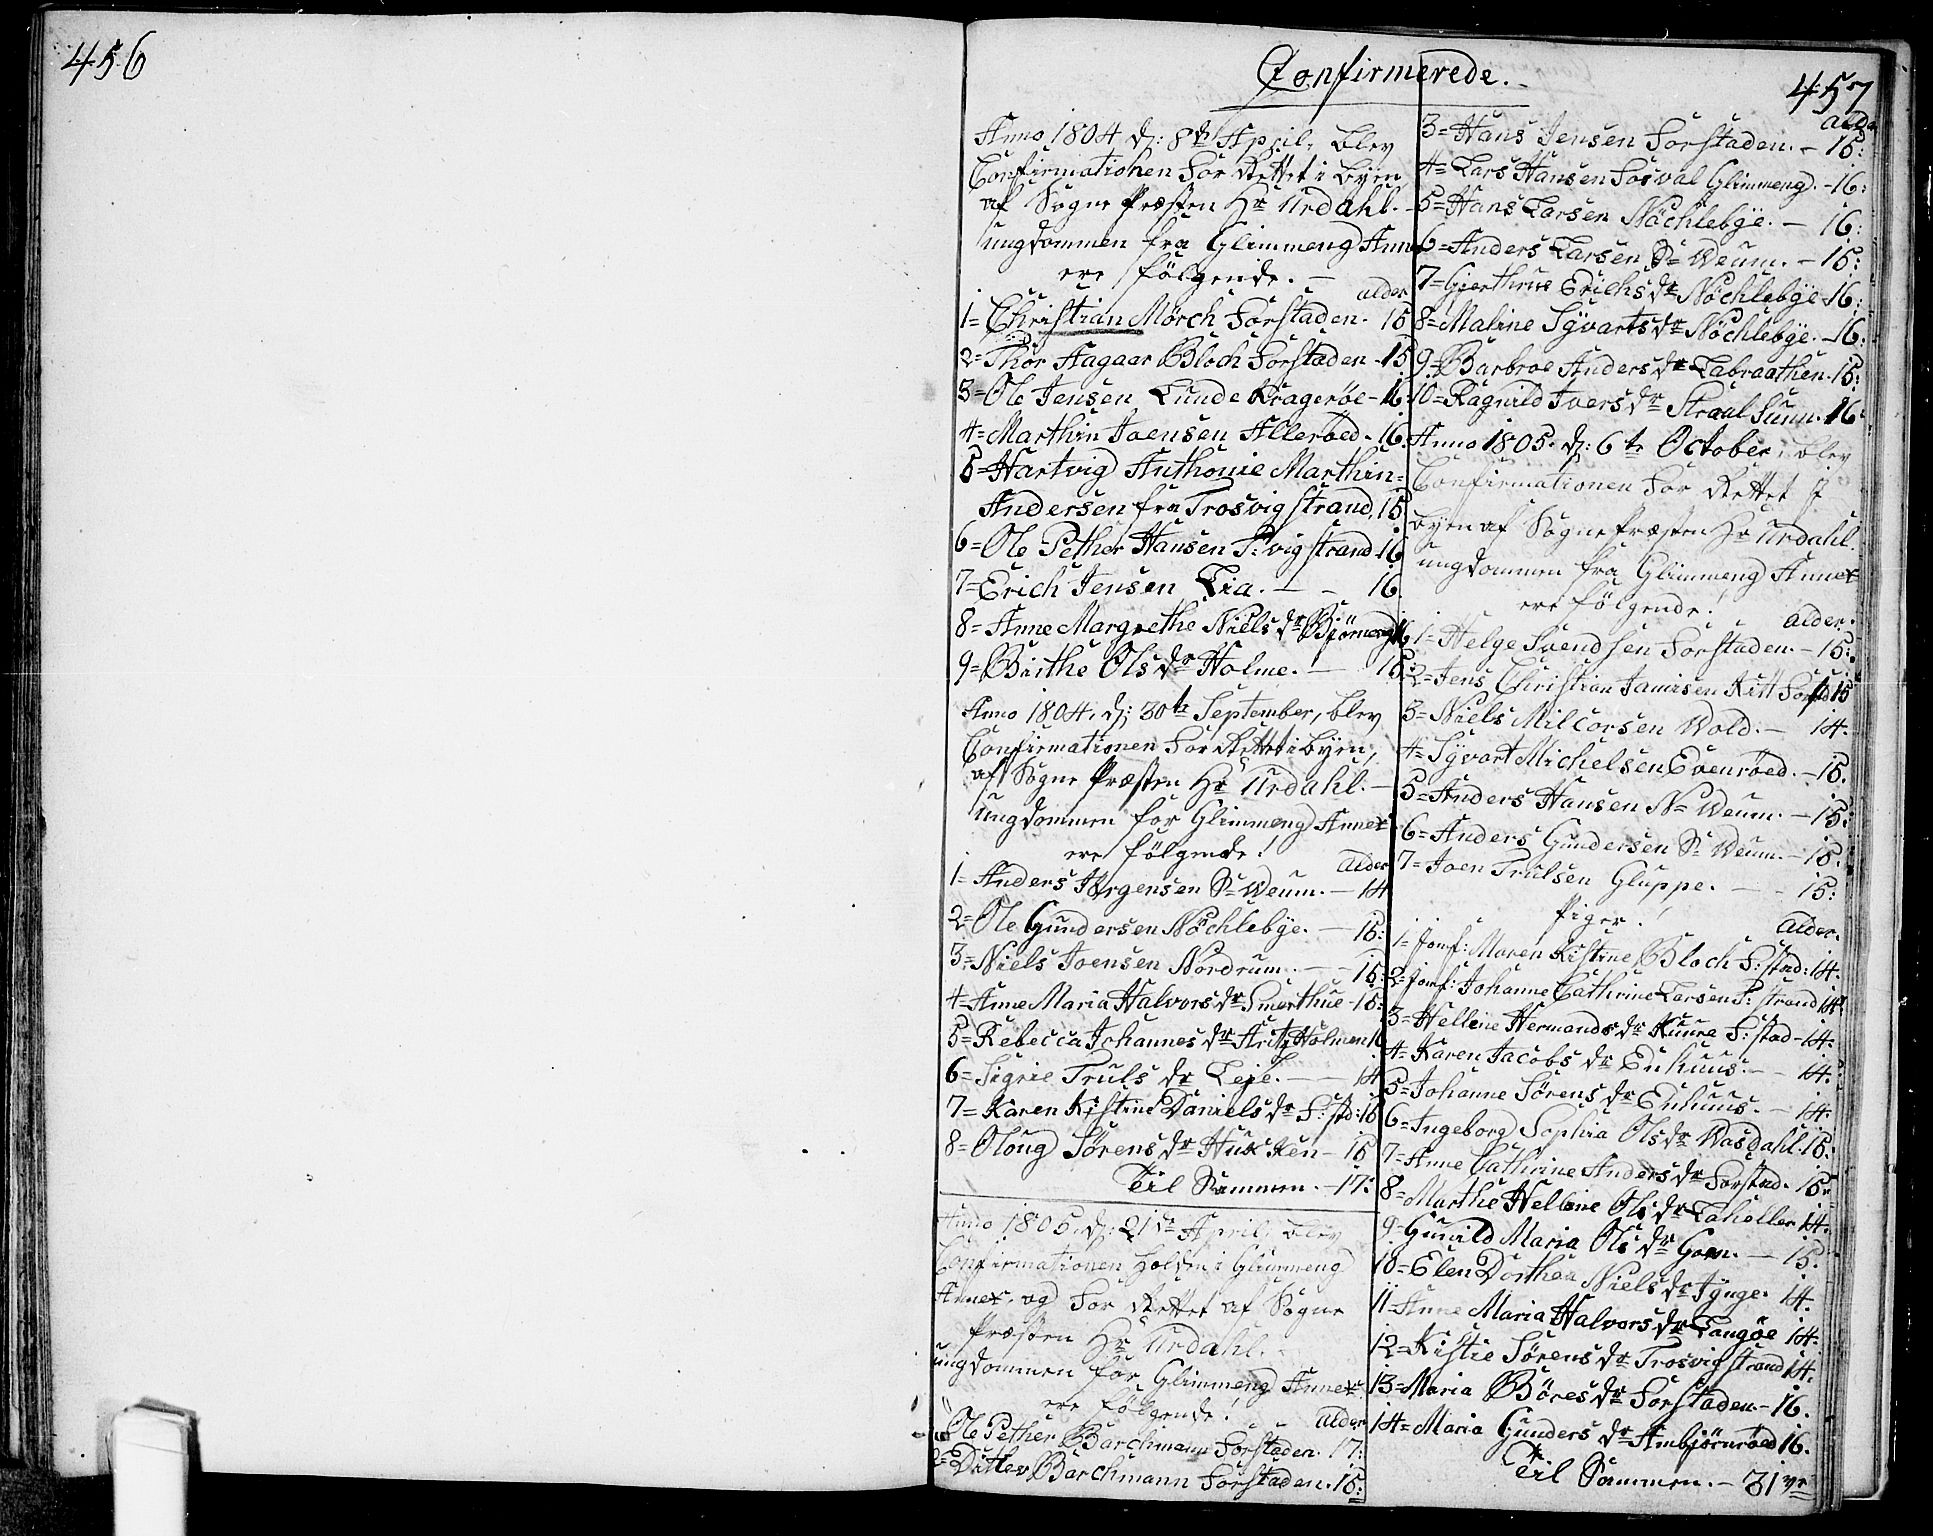 456
Confirmerede.
457
Anno 1804 d: 8de April, blev
Confirmationen Forrettet i byen
af Sogne Præsten Hr Urdahl.
ungdommen fra Glimmeng Annex
ere følgende. —
alder
1= Christian Mörch Forstaden. 15
2= Thor Aagaar Bloch Forstaden - 15
3= Ole Jensen Lunde Krageröe - 16
4= Marthin Joensen Alleröed - 16.
5= Hartvig Anthonie Marthin=
Andersen fra Trosvigstrand. 15
6= Ole Pether Hansen T:vigstrand 16
7= Erich Jensen Lia. — - 16.
8= Anne Margrethe Niels dr Björneng 16
9= Birthe Ols dr Holme. — 15:
Anno 1804, d: 30te September, blev
Confirmationen Forrettet i byen,
af Sogne Præsten Hr Urdahl. —
ungdommen for Glimmeng Annex
ere følgende!
alder
1= Anders Jörgensen S= Weum. — 14
2= Ole Gundersen Nöchlebye. — 15:
3= Niels Joensen Nordrum. — - 15:
4= Anne Maria Halvors dr Smerthue - 15:
5= Rebecca Johannes dr Fritz Holmen 16
6= Sigrie Truls dr Leje. — — 14
7= Karen Kistine Daniels dr F:std: 16
8= Oloug Sörens dr Hux Ken - 15
Til Sammen. - 17:
Anno 1805, d: 21de April, blev
Confirmationen holden i Glimmeng
Annex, og Forrettet af Sogne
Præsten Hr Urdahl.
ungdommen for Glimmeng Annex
ere følgende!
alder
1= Ole Pether Barchmann Forstaden. 17:
2= Ditlev Barchmann Forstaden. 15:
alder
3= Hans Jensen Forstaden. - 15:
4= Lars Hansen Fosval Glimmeng. - 16:
5= Hans Larsen Nöchlebye. — 16:
6= Anders Larsen S= Weum. - 15:
7= Gjerthrue Erichs dr Nöchlebye 16:
8= Maline Syvarts dr Nöchlebye. - 16:
9= Barbroe Anders dr Labraathen. 15:
10= Ragnild Ivers dr Straal Sunn. 16:
Anno 1805. d: 6te October, blev
Confirmationen Forrettet i
byen af Sogne Præsten Hr Urdahl.
ungdommen fra Glimmeng Annex
ere følgende!
alder.
1= Helge Svendsen Forstaden. - 15:
2= Jens Christian Jamisen Kitt Forstd 15
3= Niels Milcorsen Wold. — 14.
4= Syvart Michelsen Evenröed. - 15.
5= Anders Hansen N= Weum. - 15:
6= Anders Gundersen S= Weum. - 15.
7= Joen Trulsen Gluppe. — - 15:
Piger!
alder.
1= Jomf: Maren Kistine Bloch F:stad: 14.
2= Jomf: Johanne Cathrine Larsen T:strand 14
3= Hellene Hermands dr Kuure F:stad - 14.
4= Karen Jacobs dr Enhuus. - - 14.
5= Johanne Sörens dr Enhuus. - 14.
6= Ingeborg Sophia Ols dr Wasdahl. 15.
7= Anne Cathrine Anders dr Forstad. 15.
8= Marthe Hellene Ols dr Laholler 14.
9= Gunild Maria Ols dr Goen. — 15.
10= Elen Dorthea Niels dr Tÿnge. 14.
11= Anne Maria Halvors dr Langöe 14.
12= Kistie Sörens dr Trosvig strand 14.
13= Maria Böres dr Forstaden. - 16.
14= Maria Gunders dr Ambjörnröed 16.
Til Sammen. - 31 ve